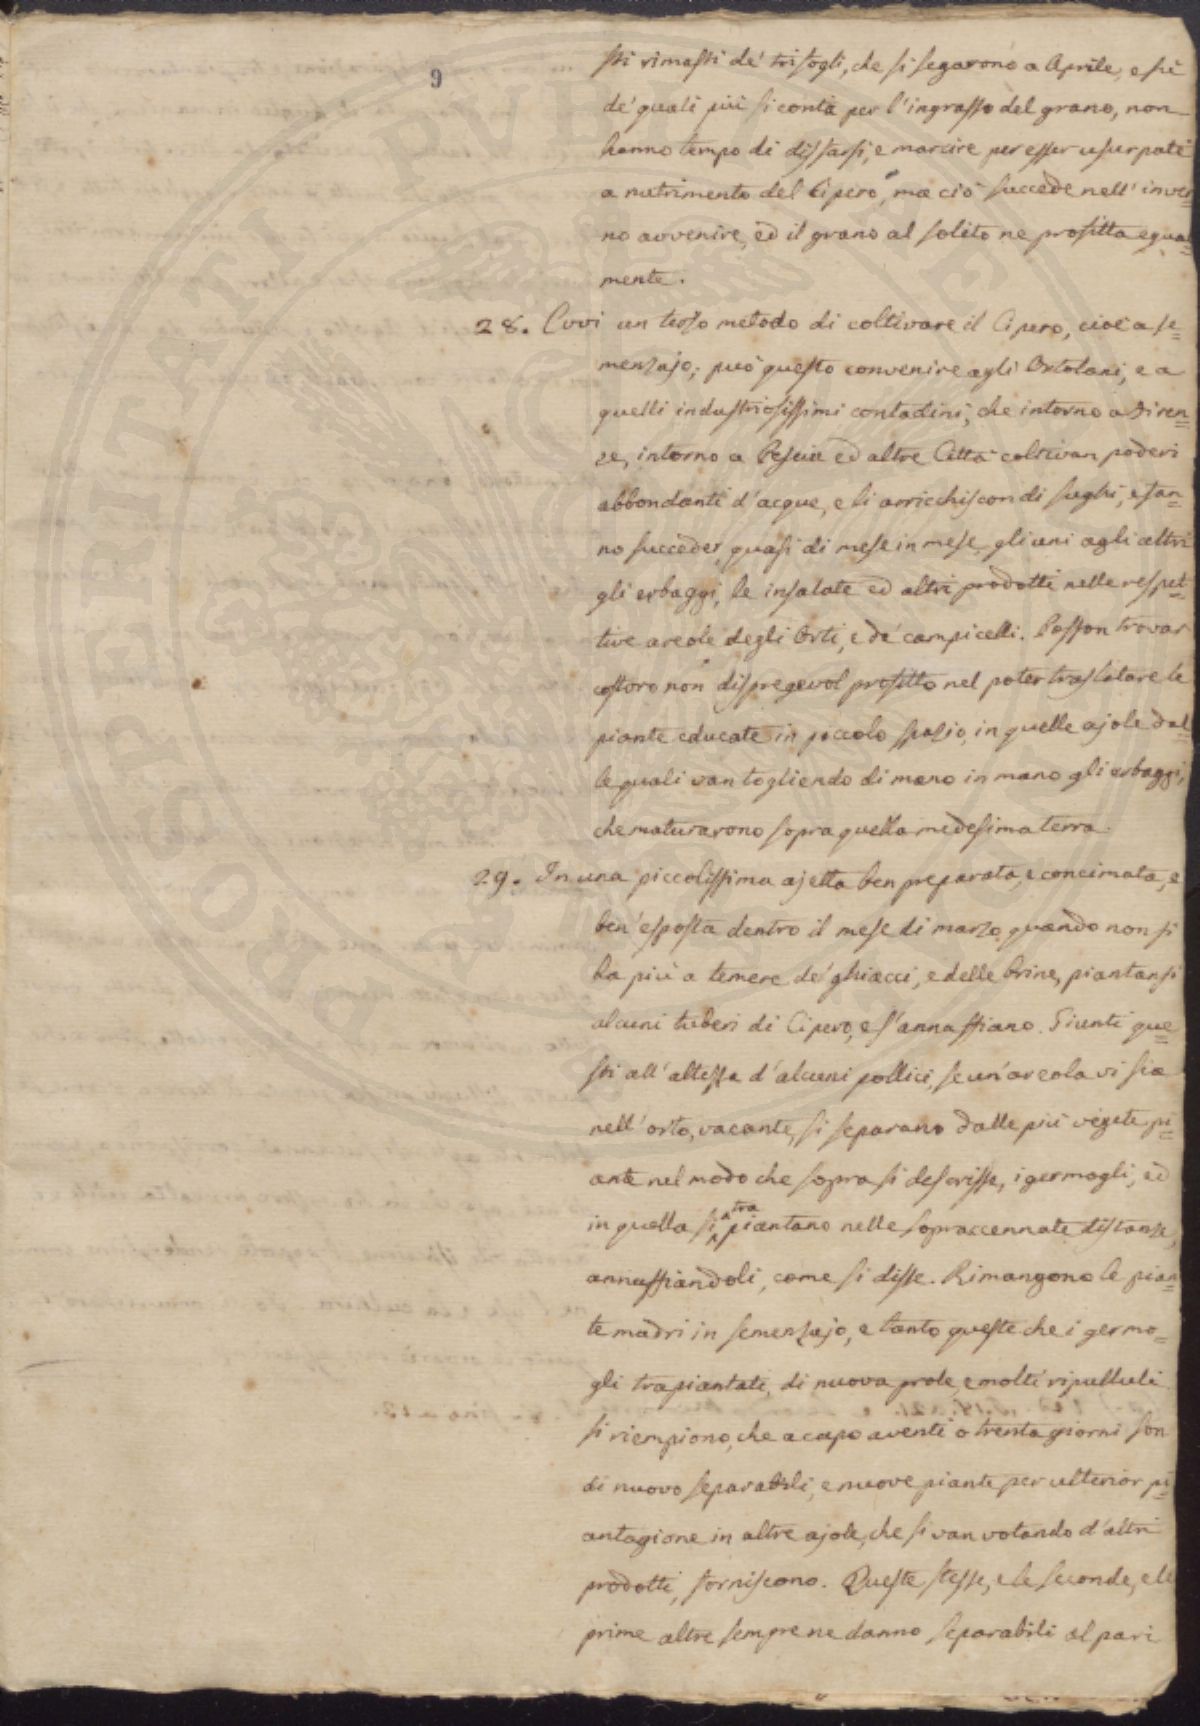 9
sti rimasti de' trifogli, che si segarono a Aprile, e su
de' quali più si conta per l'ingrasso del grano, non
hanno tempo di disfarsi, e marcire per esser usurpati
a nutrimento del Cipero, ma ciò succede nell'inver=
no avvenire, ed il grano al solito ne profitta egual=
mente.
28. Evvi un terzo metodo di coltivare il Cipero, cioè a se=
menzajo; può questo convenire agli Ortolani, e a
quelli industriosissimi contadini, che intorno a Firen=
ze, intorno a Pescia ed altre Città coltivan poderi
abbondanti d'acque, e li arricchiscon di sughi, e fan=
no succeder, quasi di mese in mese, gli uni agli altri
gli erbaggi, le insalate ed altri prodotti nelle respet=
tive areole degli Orti, e de' campicelli. Posson trovar
costoro non dispregevol profitto nel poter traslatare le
piante educate in piccolo spazio, in quelle ajole dal=
le quali van togliendo di mano in mano gli erbaggi,
che maturarono sopra quella medesima terra.
29. In una piccolissima ajetta ben preparata, e concimata, e
ben' esposta dentro il mese di marzo, quando non si
ha più a temere de' ghiacci, e delle brine, piantansi
alcuni tuberi di Cipero, e s'annaffiano. Giunti que=
sti all'altezza d'alcuni pollici, se un'areola vi sia
nell'orto, vacante, si separano dalle più vegete pi=
ante nel modo che sopra si descrisse, i germogli, ed
in quella si trapiantano nelle sopraccennate distanze,
annaffiandoli, come si disse. Rimangono le pian=
te madri in semenzajo, e tanto queste che i germo=
gli trapiantati, di nuova prole, e molti ripulluli
si riempiono, che a capo a venti o trenta giorni son
di nuovo separabili, e nuove piante per ulterior pi=
antagione in altre ajole, che si van votando d'altri
prodotti, forniscono. Queste stesse, e le seconde, e le
prime altre sempre ne danno separabili al pari